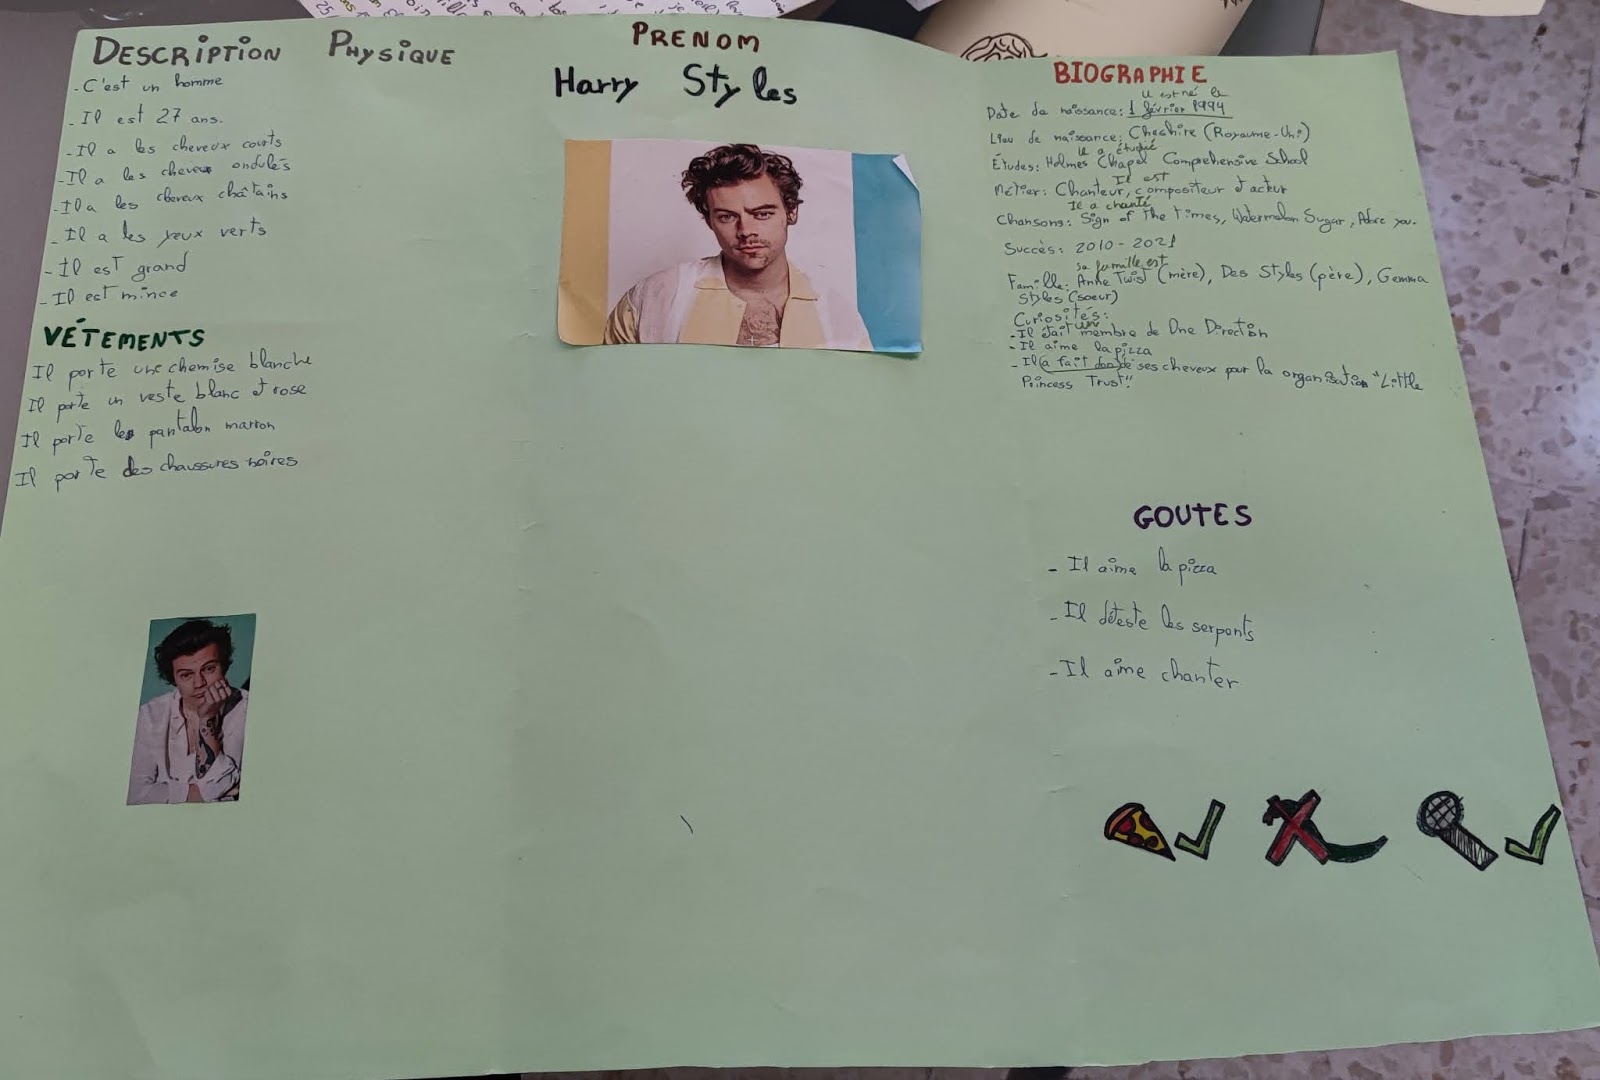 DESCRIPTION PHYSIQUE
- C'est un homme
- Il est 27 ans.
- Il a les cheveux courts
- Il a les cheveux ondulés
- Il a les cheveux châtains
- Il a les yeux verts
- Il est grand
- Il est mince
VÉTEMENTS
Il porte une chemise blanche
Il porte un veste blanc et rose
Il porte le pantalon marron
Il porte des chaussures noires
PRENOM
Harry Styles
BIOGRAPHIE
il est né le
Date de naissance: 1 février 1994
Lieu de naissance: Cheshire (Royaume-Uni)
il a étudié
Études: Holmes Chapel Comprehensive School
Il est
Métier: Chanteur, compositeur et acteur
Il a chanté
Chansons: Sign of the times, Watermelon Sugar, Adore you.
Succès: 2010 - 2021
sa famille est
Famille: Anne Twist (mère), Des Styles (père), Gemma
Styles (soeur)
Curiosités:
- Il était un membre de One Direction
- Il aime la pizza
- Il a fait don de ses cheveux pour la organisation "Little
Princess Trust"
GOUTES
- Il aime la pizza
- Il déteste les serpents
- Il aime chanter